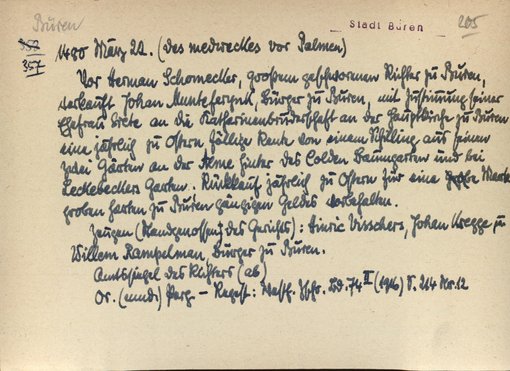 Büren
Stadt Büren
205
353
357
1480 März 22. (des medweckes vor Palmen)
Vor Herman Schomecker, großem geschworenen Richter zu Büren,
verkauft Johan Munteferyng, Bürger zu Büren, mit Zustimmung seiner
Ehefrau Grete an die Katharinenbruderschaft an der Hauptkirche zu Büren
eine jährlich zu Ostern fällige Rente von einem Schilling aus seinen
zwei Gärten an der Alme hinter des Colden Baumgarten und bei
Leckebeckers Garten. Rückkauf jährlich zu Ostern für eine Mark
groben harten zu Büren gängigen Geldes vorbehalten.
Zeugen (Standgenossen des Gerichts): Hinric Visschers, Johan Kregge zu
Willem Rampelman, Bürger zu Büren.
Amtssiegel des Richters (ab)
Or. (mnd.) Perg. – Regest: Westf. Ztschr. Bd. 74 II (1916) S. 214 Nr. 12